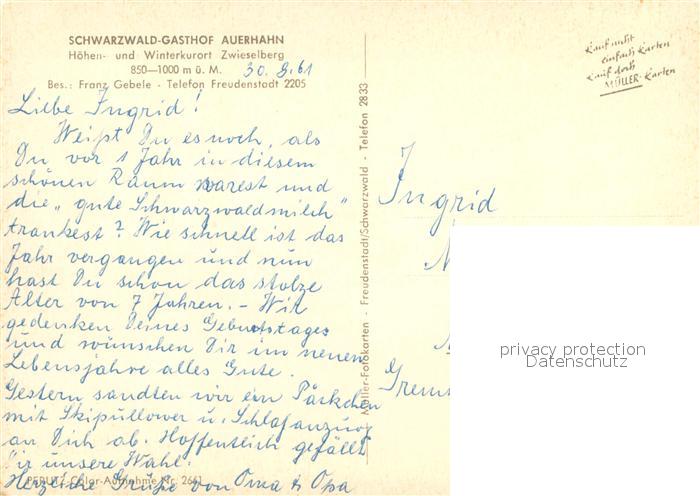 SCHWARZWALD-GASTHOF AUERHAHN
Höhen- und Winterkurort Zwieselberg
850—1000 m ü. M. 30. 8. 61
Bes.: Franz Gebele - Telefon Freudenstadt 2205
Liebe Ingrid!
Weißt Du es noch, als
Du vor 1 Jahr in diesem
schönen Raum warest und
die „gute Schwarzwaldmilch"
trankest? Wie schnell ist das
Jahr vergangen und nun
hast Du schon das stolze
Alter von 7 Jahren. – Wir
gedenken Deines Geburtstages
und wünschen Dir im neuen
Lebensjahre alles Gute.
Gestern sandten wir ein Päckchen
mit Skipullower u. Schlafanzug
an Dich ab. Hoffentlich gefällt
ir unsere Wahl.
PERUTZ-Color-Aufnahme Nr. 2661
Herzliche Grüße von Oma & Opa
Müller-Fotokarten - Freudenstadt/Schwarzwald - Telefon 2833
Kauf nicht
einfach Karten
Kauf doch
MÜLLER-Karten
Ingrid
privacy protection
Datenschutz